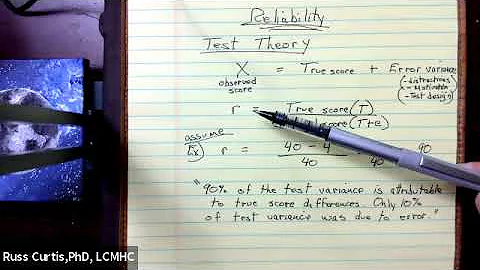 Reliability
Test Theory
X = True score + Error variance
observed
score
(-distractions
- Motivation
- Test design)
r = True score (T)
score (T+e)
assume
Ex r = 40 - 4
40
40
90
"90% of the test variance is attributable
to true score differences. Only 10%
of test variance was due to error."
Russ Curtis,PhD, LCMHC